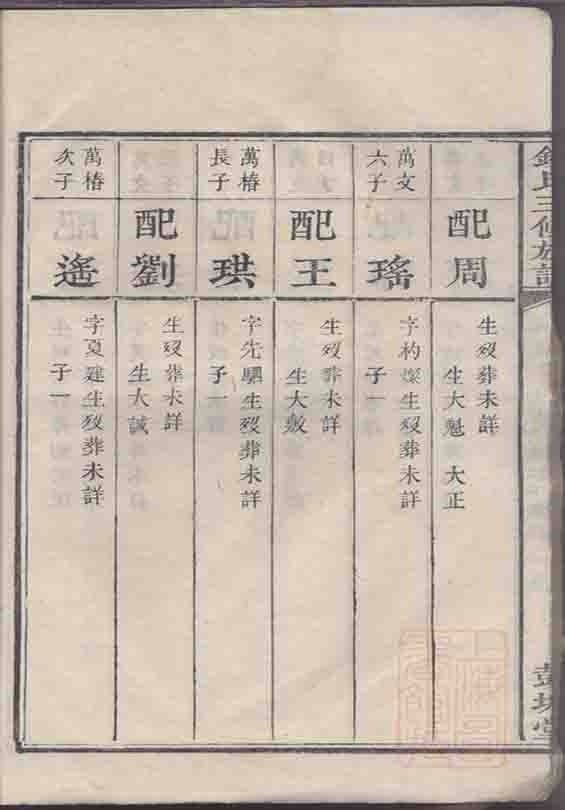 配周
生歿葬未詳
生大魁 大正
萬文
六子
瑤
字杓燦生歿葬未詳
子一
配王
生歿葬未詳
生大敖
萬椿
長子
珙
字先駟生歿葬未詳
子一
配劉
生歿葬未詳
生大誠
萬椿
次子
遙
字夏建生歿葬未詳
子一